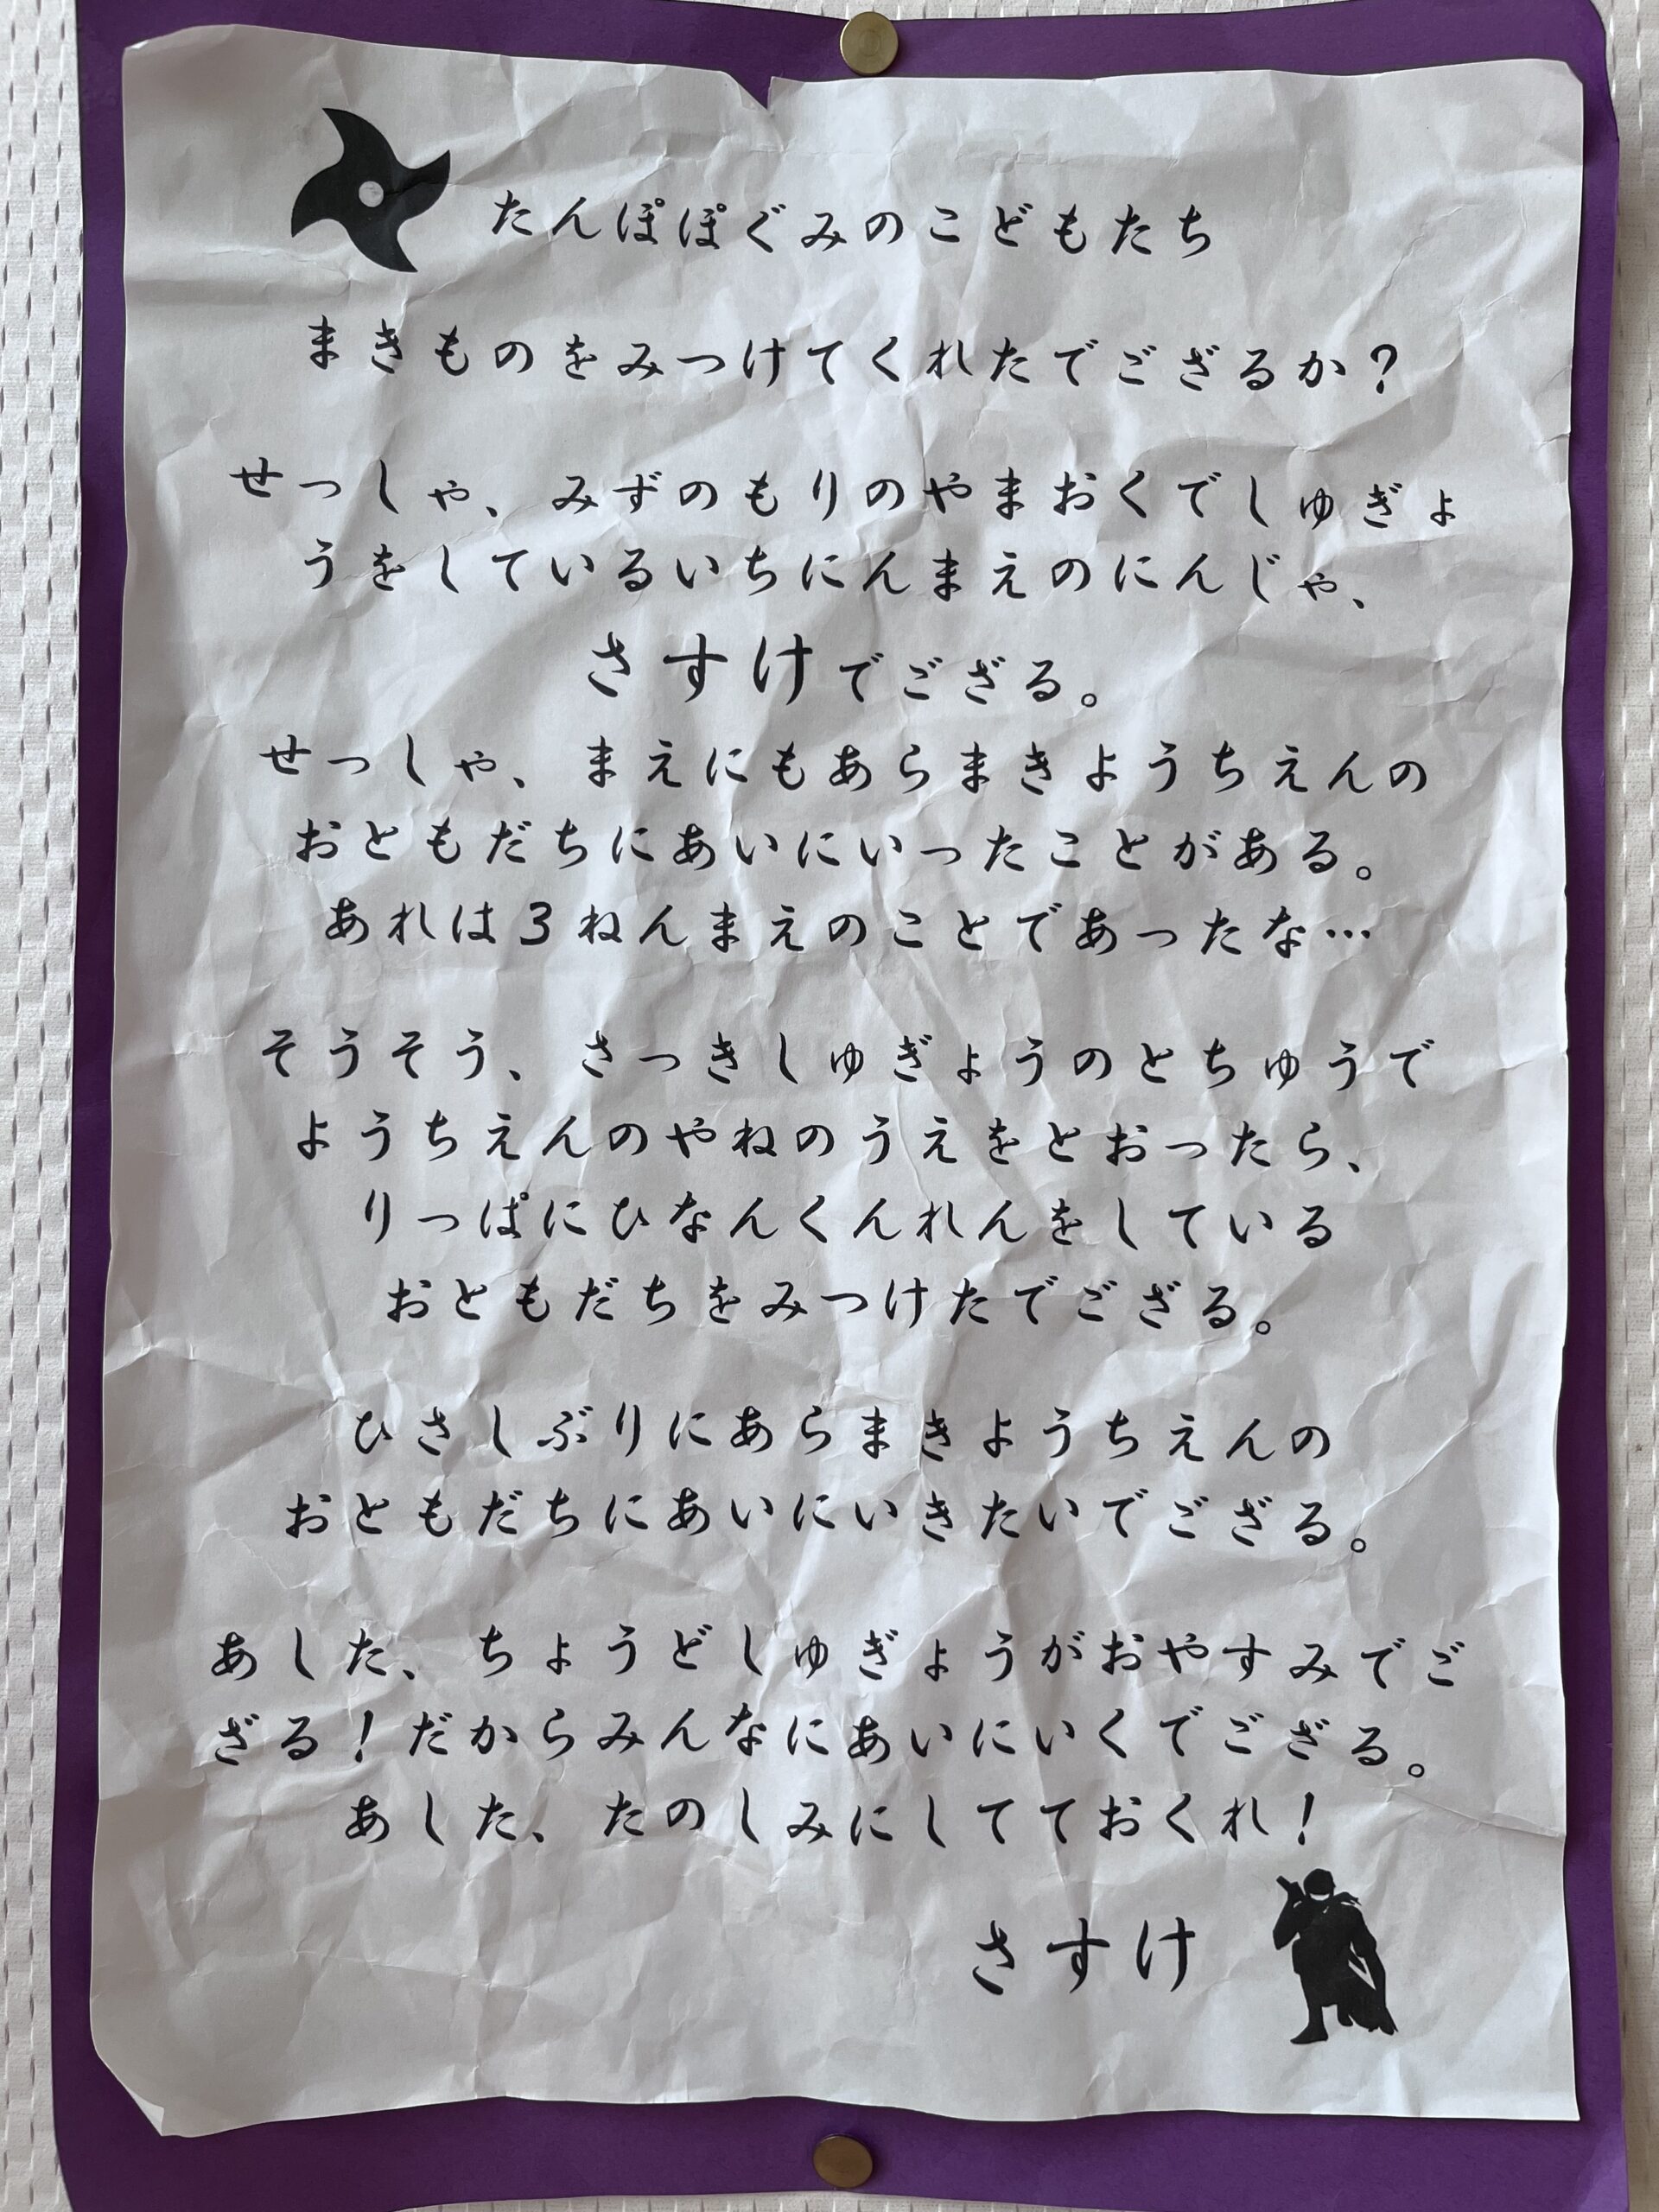 たんぽぽぐみのこどもたち
まきものをみつけてくれたでござるか？
せっしゃ、みずのもりのやまおくでしゅぎょ
うをしているいちにんまえのにんじゃ、
さすけでござる。
せっしゃ、まえにもあらまきようちえんの
おともだちにあいにいったことがある。
あれは３ねんまえのことであったな…
そうそう、さっきしゅぎょうのとちゅうで
ようちえんのやねのうえをとおったら、
りっぱにひなんくんれんをしている
おともだちをみつけたでござる。
ひさしぶりにあらまきようちえんの
おともだちにあいにいきたいでござる。
あした、ちょうどしゅぎょうがおやすみでご
ざる！だからみんなにあいにいくでござる。
あした、たのしみにしてておくれ！
さすけ